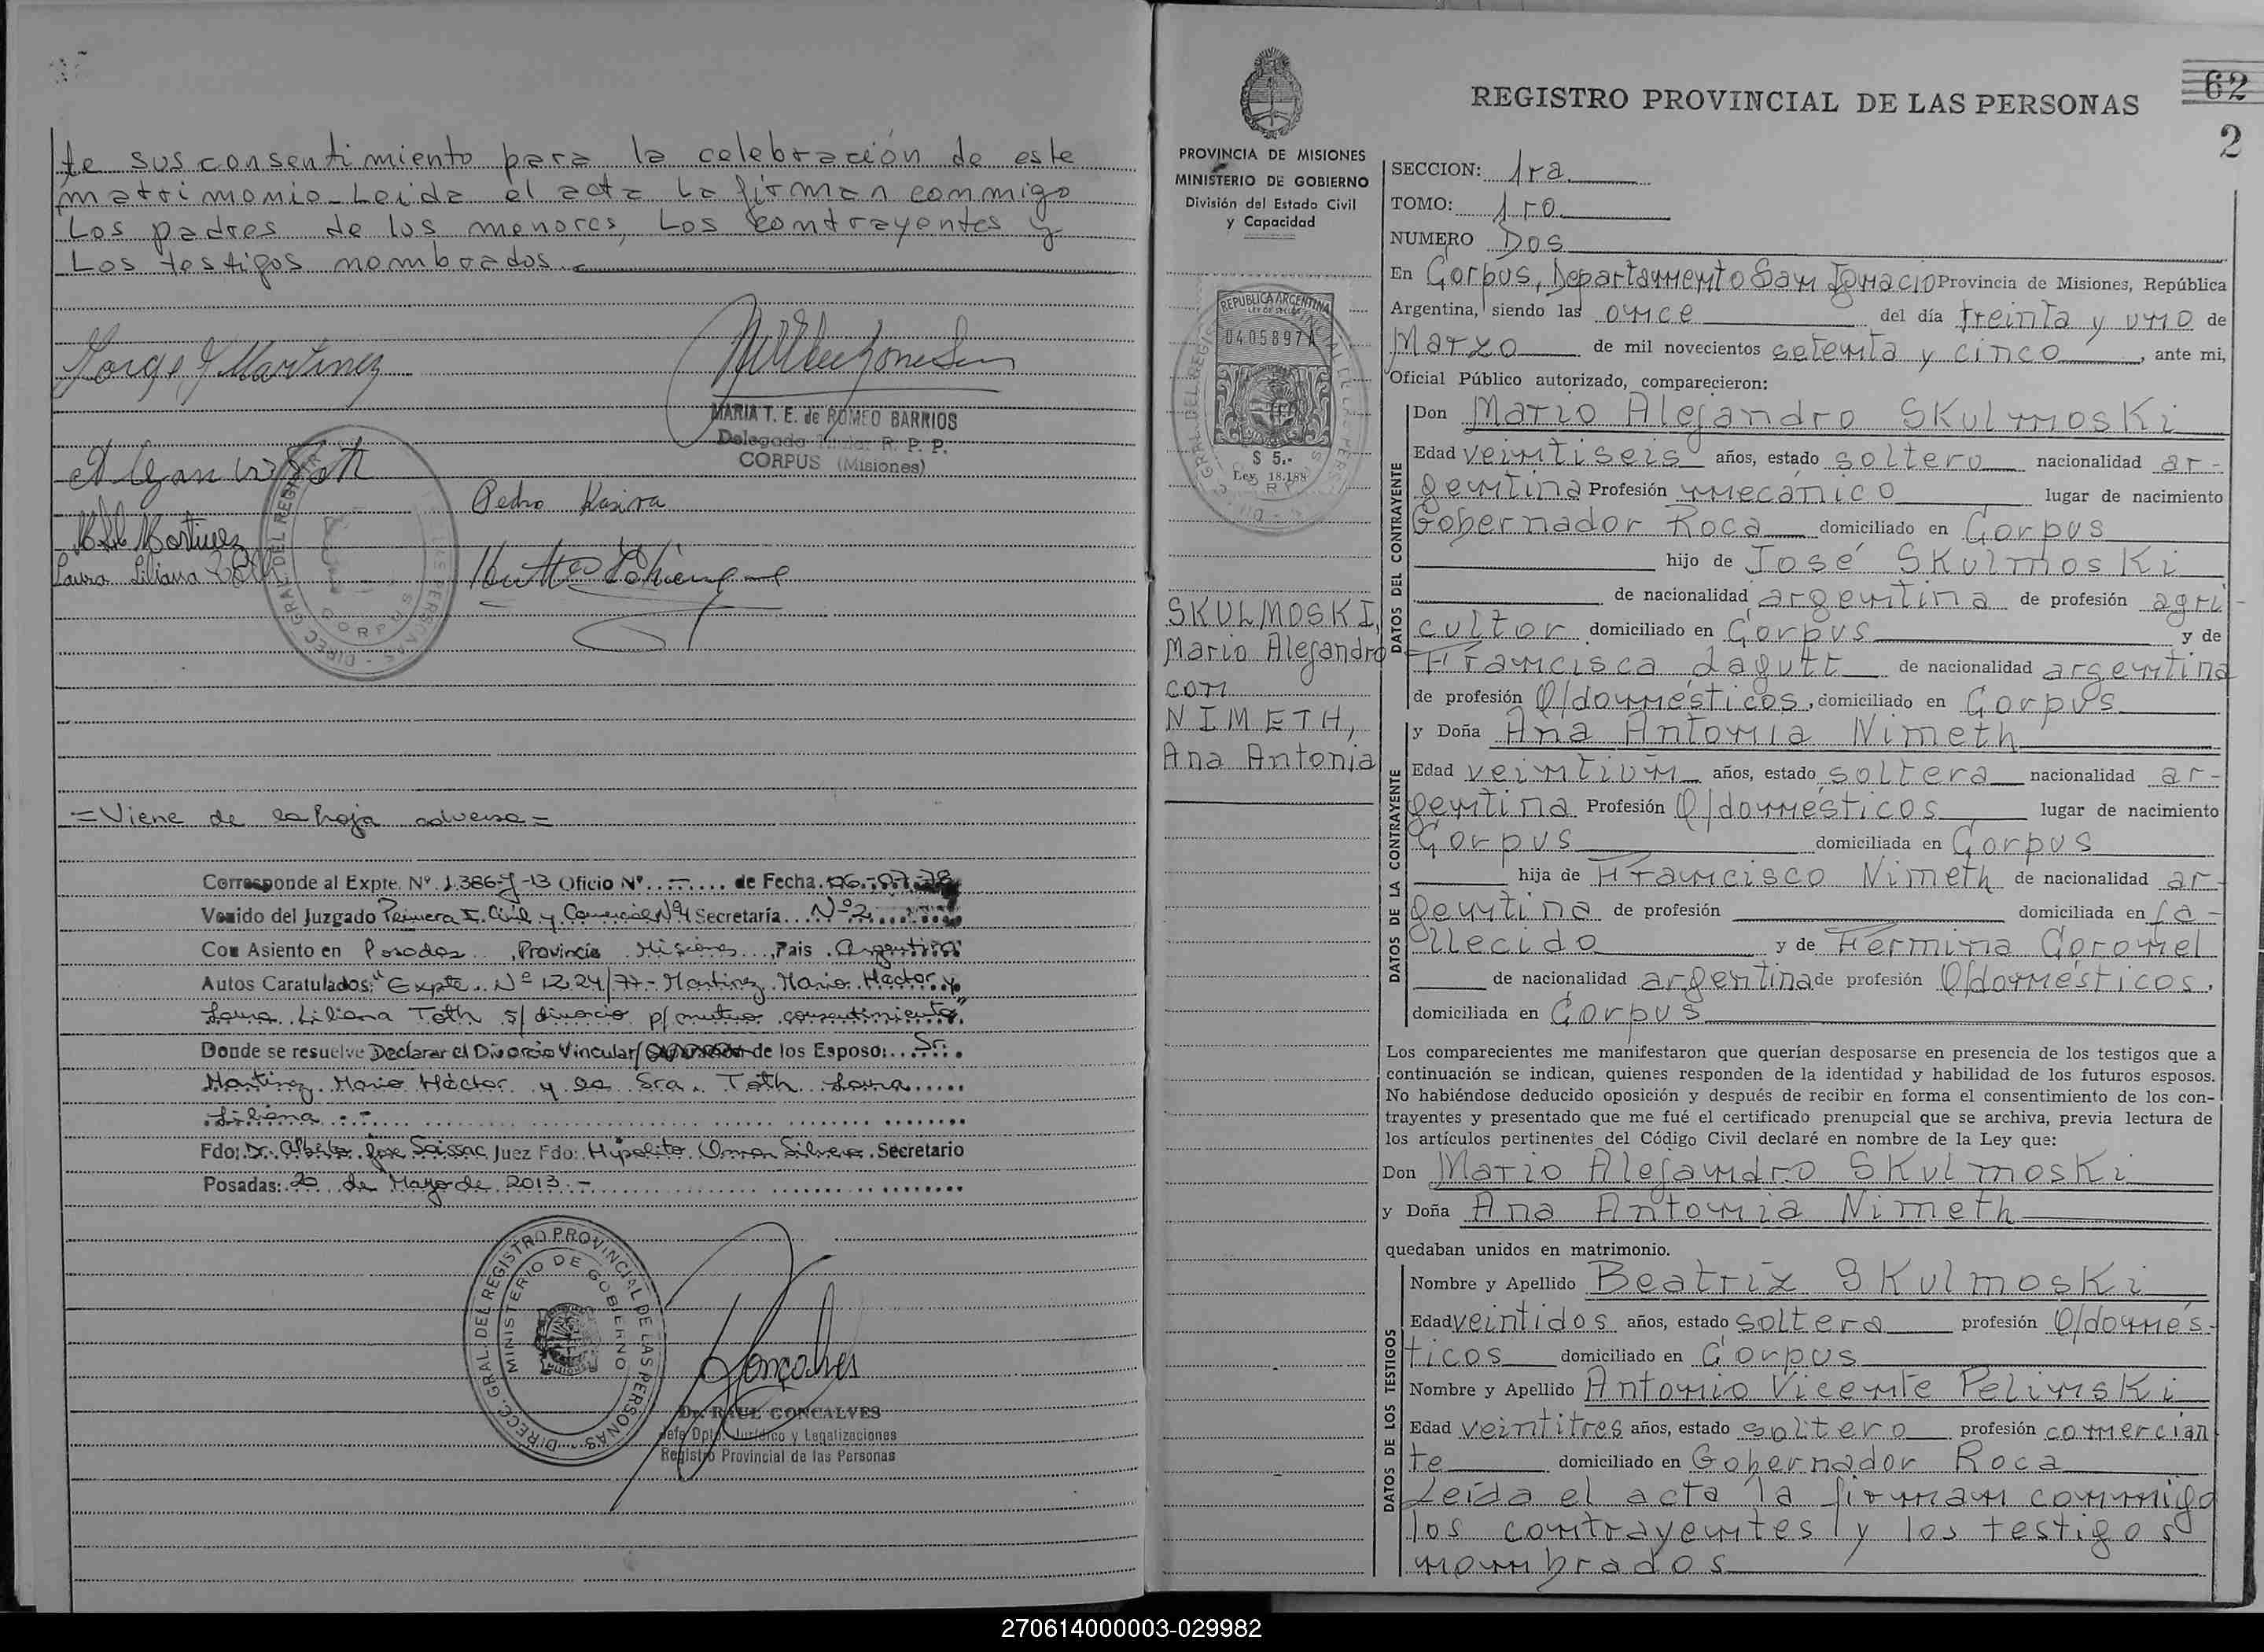 te sus consentimiento para la celebración de este
matrimonio. Leida el acta la firman conmigo
Los padres de los menores, Los contrayentes y
Los testigos nombrados.
Jorge J Martinez
MARIA T. E. de ROMEO BARRIOS
Delegado Titular R. P. P.
CORPUS (Misiones)
Pedro
Martinez
Laura Liliana Toth
DIREC. GRAL. DEL REGISTRO
CORPUS
=Viene de la hoja adversa=
Corresponde al Expte. Nº. 1.386-J-13 Oficio Nº. .-.... de Fecha. 06.-07.78
Venido del Juzgado Primera I. Civil y Comercial Nº4 Secretaría... Nº2
Con Asiento en Posadas, Provincia Misiones, Pais Argentina
Autos Caratulados: "Expte. Nº 1224/77 - Martinez Mario Hector y
Laura Liliana Toth s/ divorcio p/ mutuo consentimiento"
Donde se resuelve Declarar el Divorcio Vincular/ de los Esposo: Sr.
Martinez Mario Héctor y la Sra. Toth Laura
Liliana.-
Fdo: Dr. Alberto Jose Soissac Juez Fdo: Hipolito Omar Silvero. Secretario
Posadas: 20 de Mayo de 2013.-
DIRECC. GRAL. DEL REGISTRO PROVINCIAL DE LAS PERSONAS
MINISTERIO DE GOBIERNO
Gonçalves
Dr. RAUL GONCALVES
Jefe Dpto. Jurídico y Legalizaciones
Registro Provincial de las Personas
62
REGISTRO PROVINCIAL DE LAS PERSONAS
2
PROVINCIA DE MISIONES
MINISTERIO DE GOBIERNO
División del Estado Civil
y Capacidad
REPUBLICA ARGENTINA
LEY DE SELLOS
0405897A
$ 5.-
Ley 18.188
SKULMOSKI,
Mario Alejandro
con
NIMETH,
Ana Antonia
SECCION: 1ra
TOMO: 1ro
NUMERO Dos
En Corpus, Departamento San Ignacio Provincia de Misiones, República
Argentina, siendo las once del día treinta y uno de
Marzo de mil novecientos setenta y cinco, ante mi,
Oficial Público autorizado, comparecieron:
DATOS DEL CONTRAYENTE
Don Mario Alejandro SKulmoski
Edad veintiseis años, estado soltero nacionalidad ar-
gentina Profesión mecánico lugar de nacimiento
Gobernador Roca domiciliado en Corpus
hijo de José SKulmoski
de nacionalidad argentina de profesión agri-
cultor domiciliado en Corpus y de
Francisca dagutt de nacionalidad argentina
de profesión Q/domésticos, domiciliado en Corpus
DATOS DE LA CONTRAYENTE
y Doña Ana Antonia Nimeth
Edad veintiún años, estado soltera nacionalidad ar-
gentina Profesión Q/domésticos lugar de nacimiento
Corpus domiciliada en Corpus
hija de Francisco Nimeth de nacionalidad ar-
gentina de profesión domiciliada en fa-
llecido y de Fermina Coronel
de nacionalidad argentina de profesión Q/domésticos,
domiciliada en Corpus
Los comparecientes me manifestaron que querían desposarse en presencia de los testigos que a
continuación se indican, quienes responden de la identidad y habilidad de los futuros esposos.
No habiéndose deducido oposición y después de recibir en forma el consentimiento de los con-
trayentes y presentado que me fué el certificado prenupcial que se archiva, previa lectura de
los artículos pertinentes del Código Civil declaré en nombre de la Ley que:
Don Mario Alejandro SKulmoski
y Doña Ana Antonia Nimeth
quedaban unidos en matrimonio.
DATOS DE LOS TESTIGOS
Nombre y Apellido Beatriz SKulmoski
Edad veintidos años, estado soltera profesión Q/domés-
ticos domiciliado en Corpus
Nombre y Apellido Antonio Vicente Pelinski
Edad veintitres años, estado soltero profesión comercian
te domiciliado en Gobernador Roca
Leída el acta la firman conmigo
los contrayentes y los testigos
nombrados
270614000003-029982